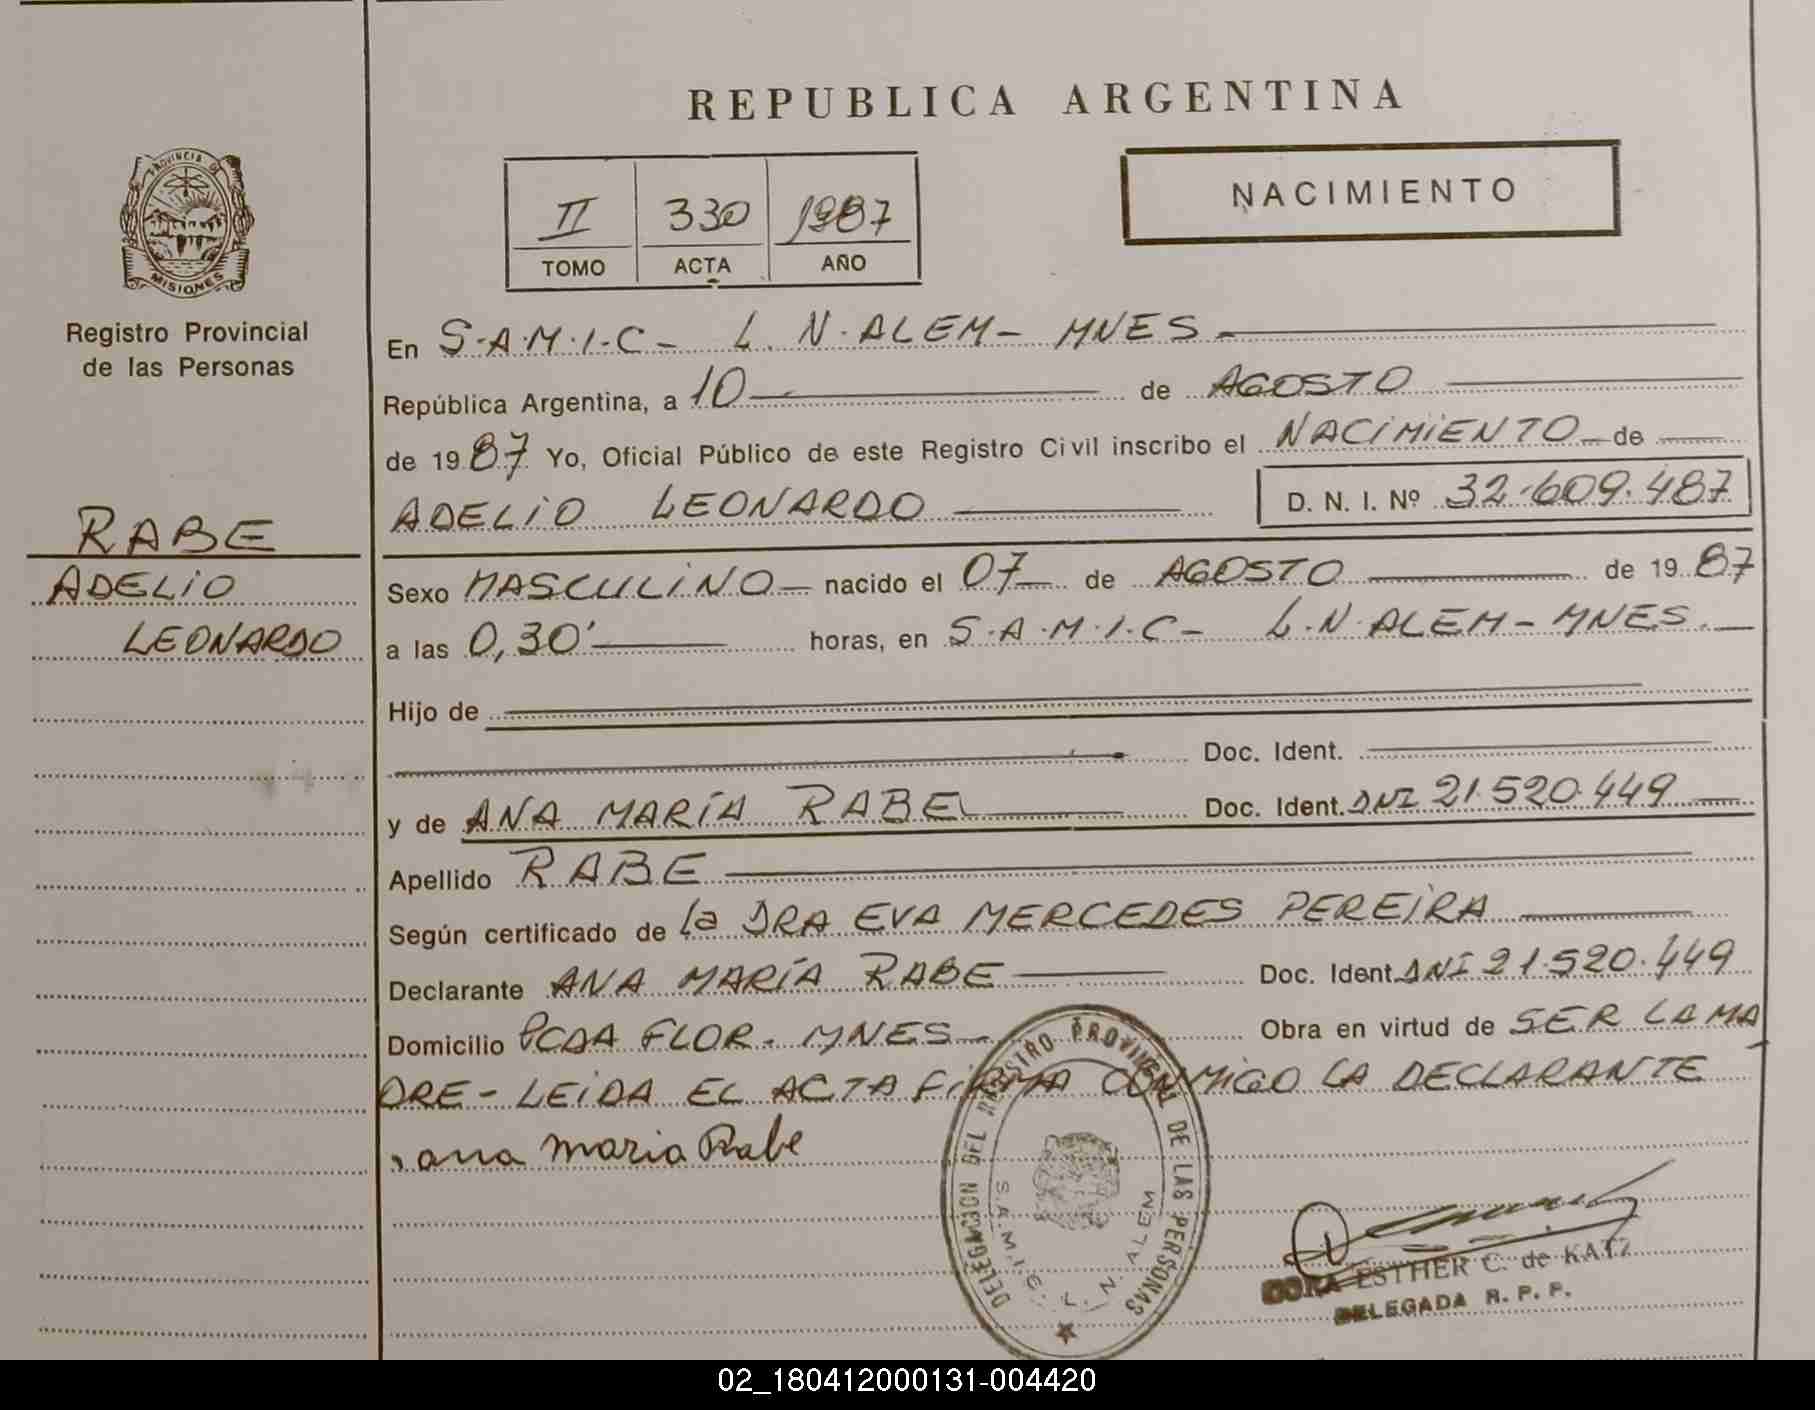 REPUBLICA ARGENTINA
PROVINCIA DE
MISIONES
Registro Provincial
de las Personas
RABE
ADELIO
LEONARDO
II 330 1987
TOMO ACTA AÑO
NACIMIENTO
En S.A.M.I.C- L.N.ALEM- MNES-
República Argentina, a 10 de AGOSTO
de 1987 Yo, Oficial Público de este Registro Civil inscribo el NACIMIENTO de
ADELIO LEONARDO D. N. I. Nº 32.609.487
Sexo MASCULINO nacido el 07 de AGOSTO de 1987
a las 0,30' horas, en S.A.M.I.C- L.N.ALEM-MNES.
Hijo de
Doc. Ident.
y de ANA MARÍA RABE Doc. Ident. DNI 21.520.449
Apellido RABE
Según certificado de la DRA EVA MERCEDES PEREIRA
Declarante ANA MARÍA RABE Doc. Ident. DNI 21.520.449
Domicilio PCDA FLOR. MNES- Obra en virtud de SER LA MA
DRE- LEIDA EL ACTA FIRMA CONMIGO LA DECLARANTE
ana maria Rabe
DELEGACION DEL REGISTRO PROVINCIAL DE LAS PERSONAS
S.A.M.I.C. L. N. ALEM
ESTHER C. de KATZ
DELEGADA R. P. P.
02_180412000131-004420